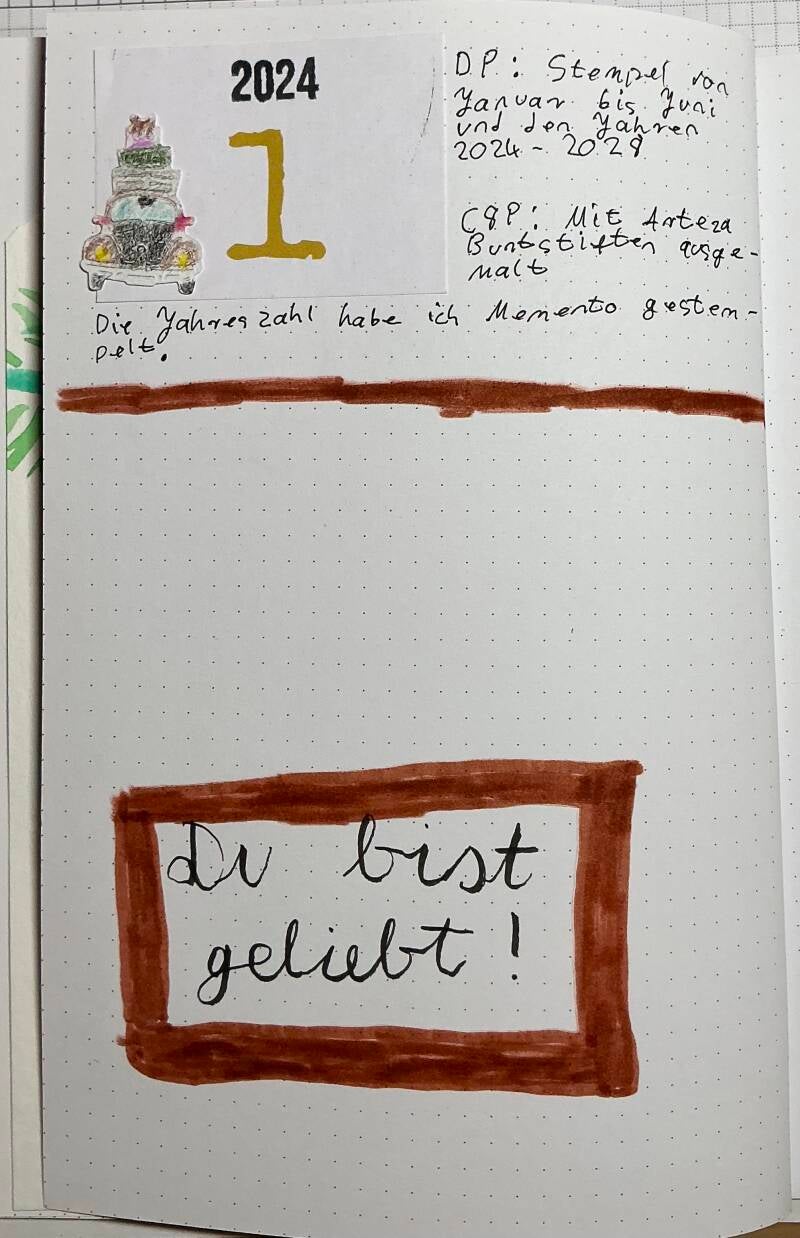 2024
1
DP: Stempel von
Januar bis Juni
und den Jahren
2024 - 2029
C&P: Mit Arteza
Buntstiften ausge-
malt
Die Jahreszahl habe ich Memento gestem-
pelt.
Du bist
geliebt!